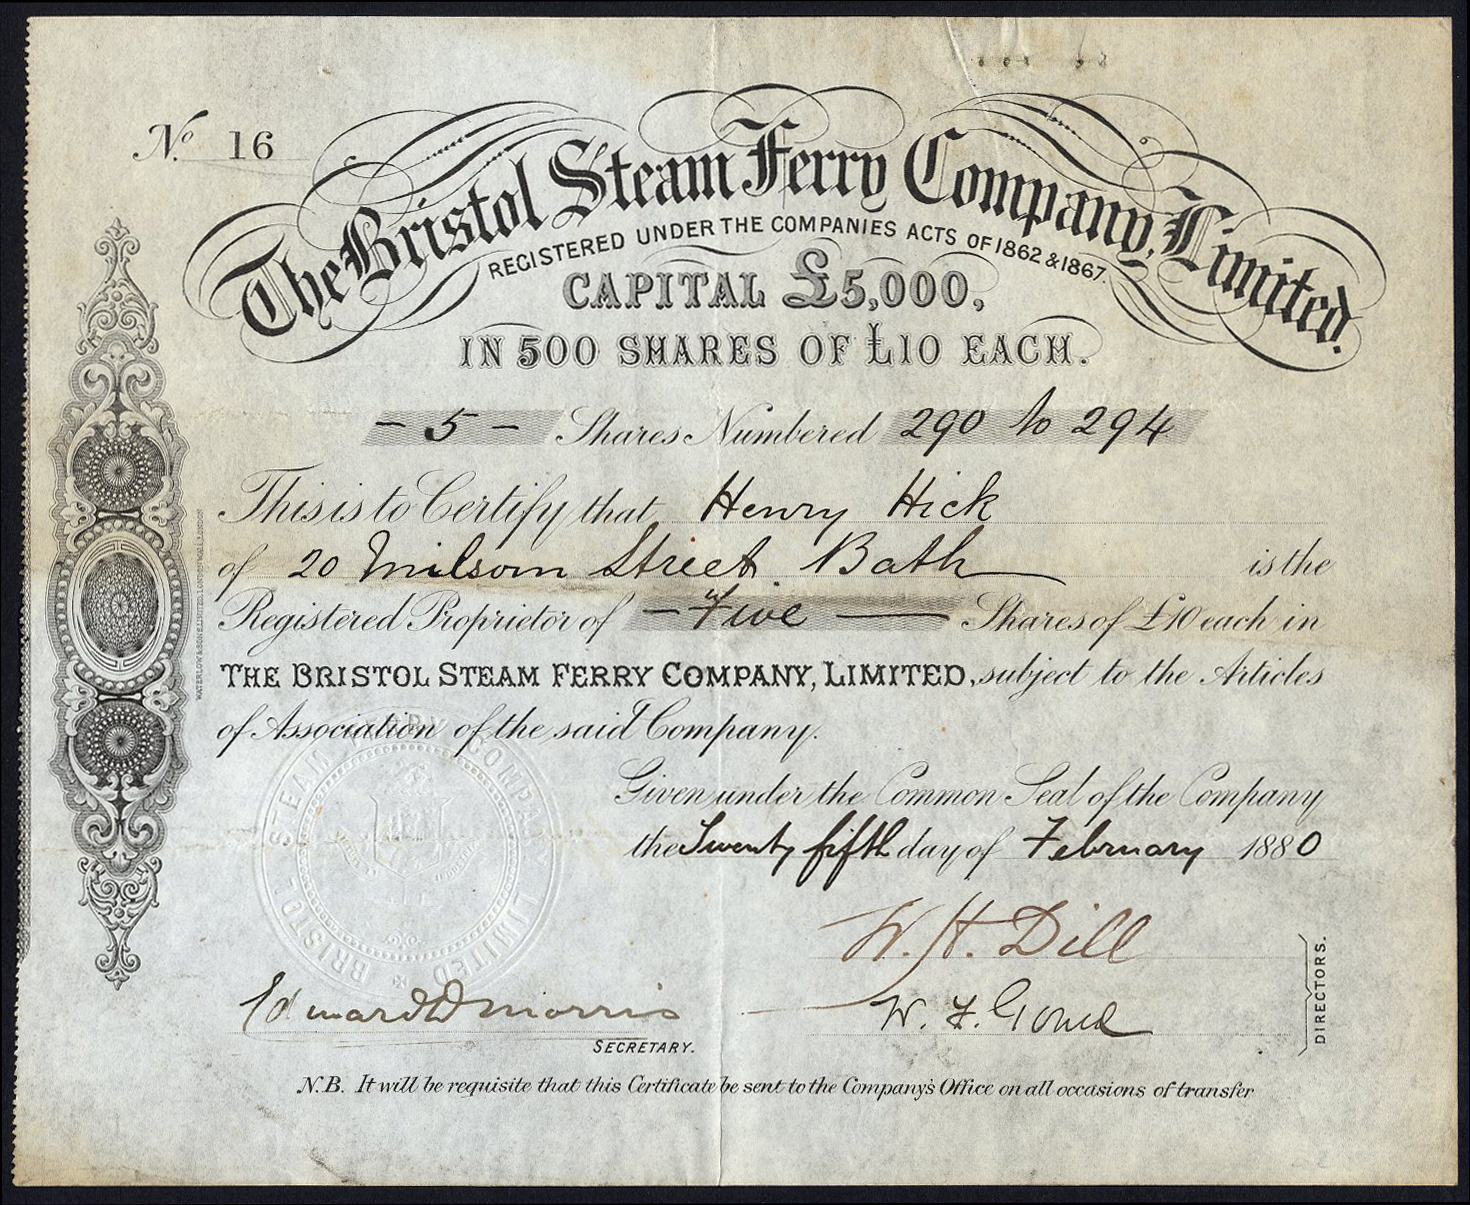 No. 16
The Bristol Steam Ferry Company, Limited.
REGISTERED UNDER THE COMPANIES ACTS OF 1862 & 1867.
CAPITAL £5,000,
IN 500 SHARES OF £10 EACH.
- 5 - Shares Numbered 290 to 294
This is to Certify that Henry Hick
of 20 Milsom Street Bath is the
Registered Proprietor of - Five - Shares of £10 each in
THE BRISTOL STEAM FERRY COMPANY, LIMITED, subject to the Articles
of Association of the said Company.
Given under the Common Seal of the Company
the Twenty fifth day of February 1880
BRISTOL STEAM FERRY COMPANY LIMITED
W. H. Dill
Edward D Morris
W. F. Gould
SECRETARY.
DIRECTORS.
N.B. It will be requisite that this Certificate be sent to the Company's Office on all occasions of transfer
WATERLOW & SONS LIMITED, LONDON WALL, LONDON